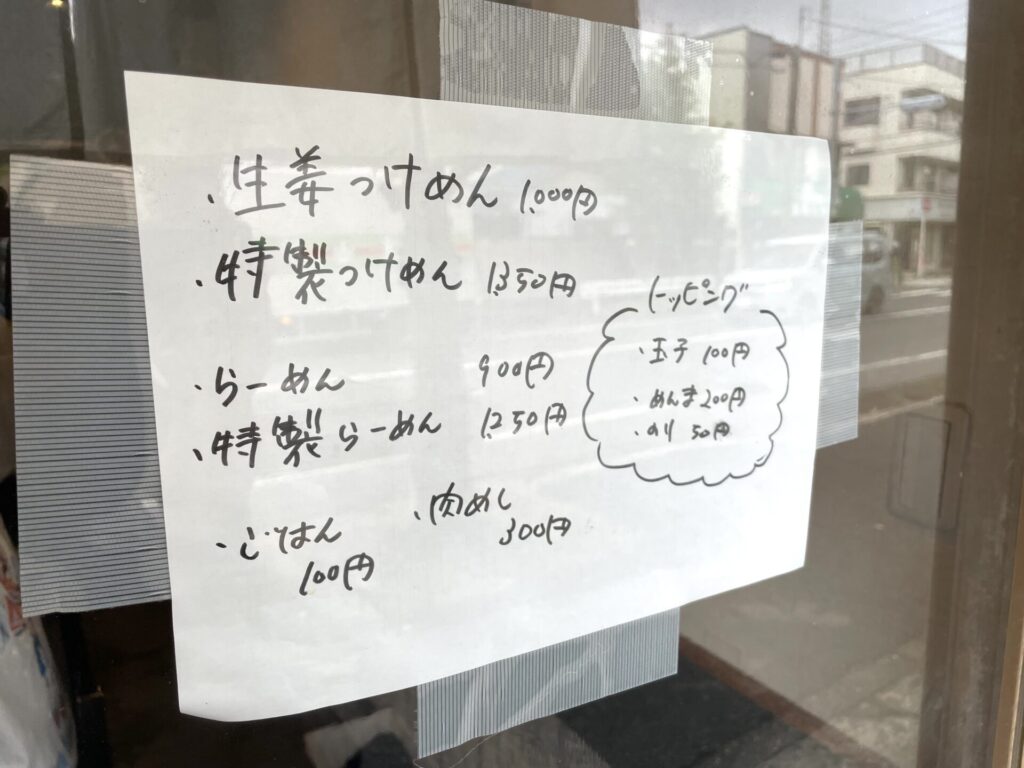 ・生姜つけめん 1,000円
・特製つけめん 1,350円
・らーめん 900円
・特製らーめん 1,250円
・ごはん
100円
・肉めし
300円
トッピング
・玉子 100円
・めんま200円
・のり 50円